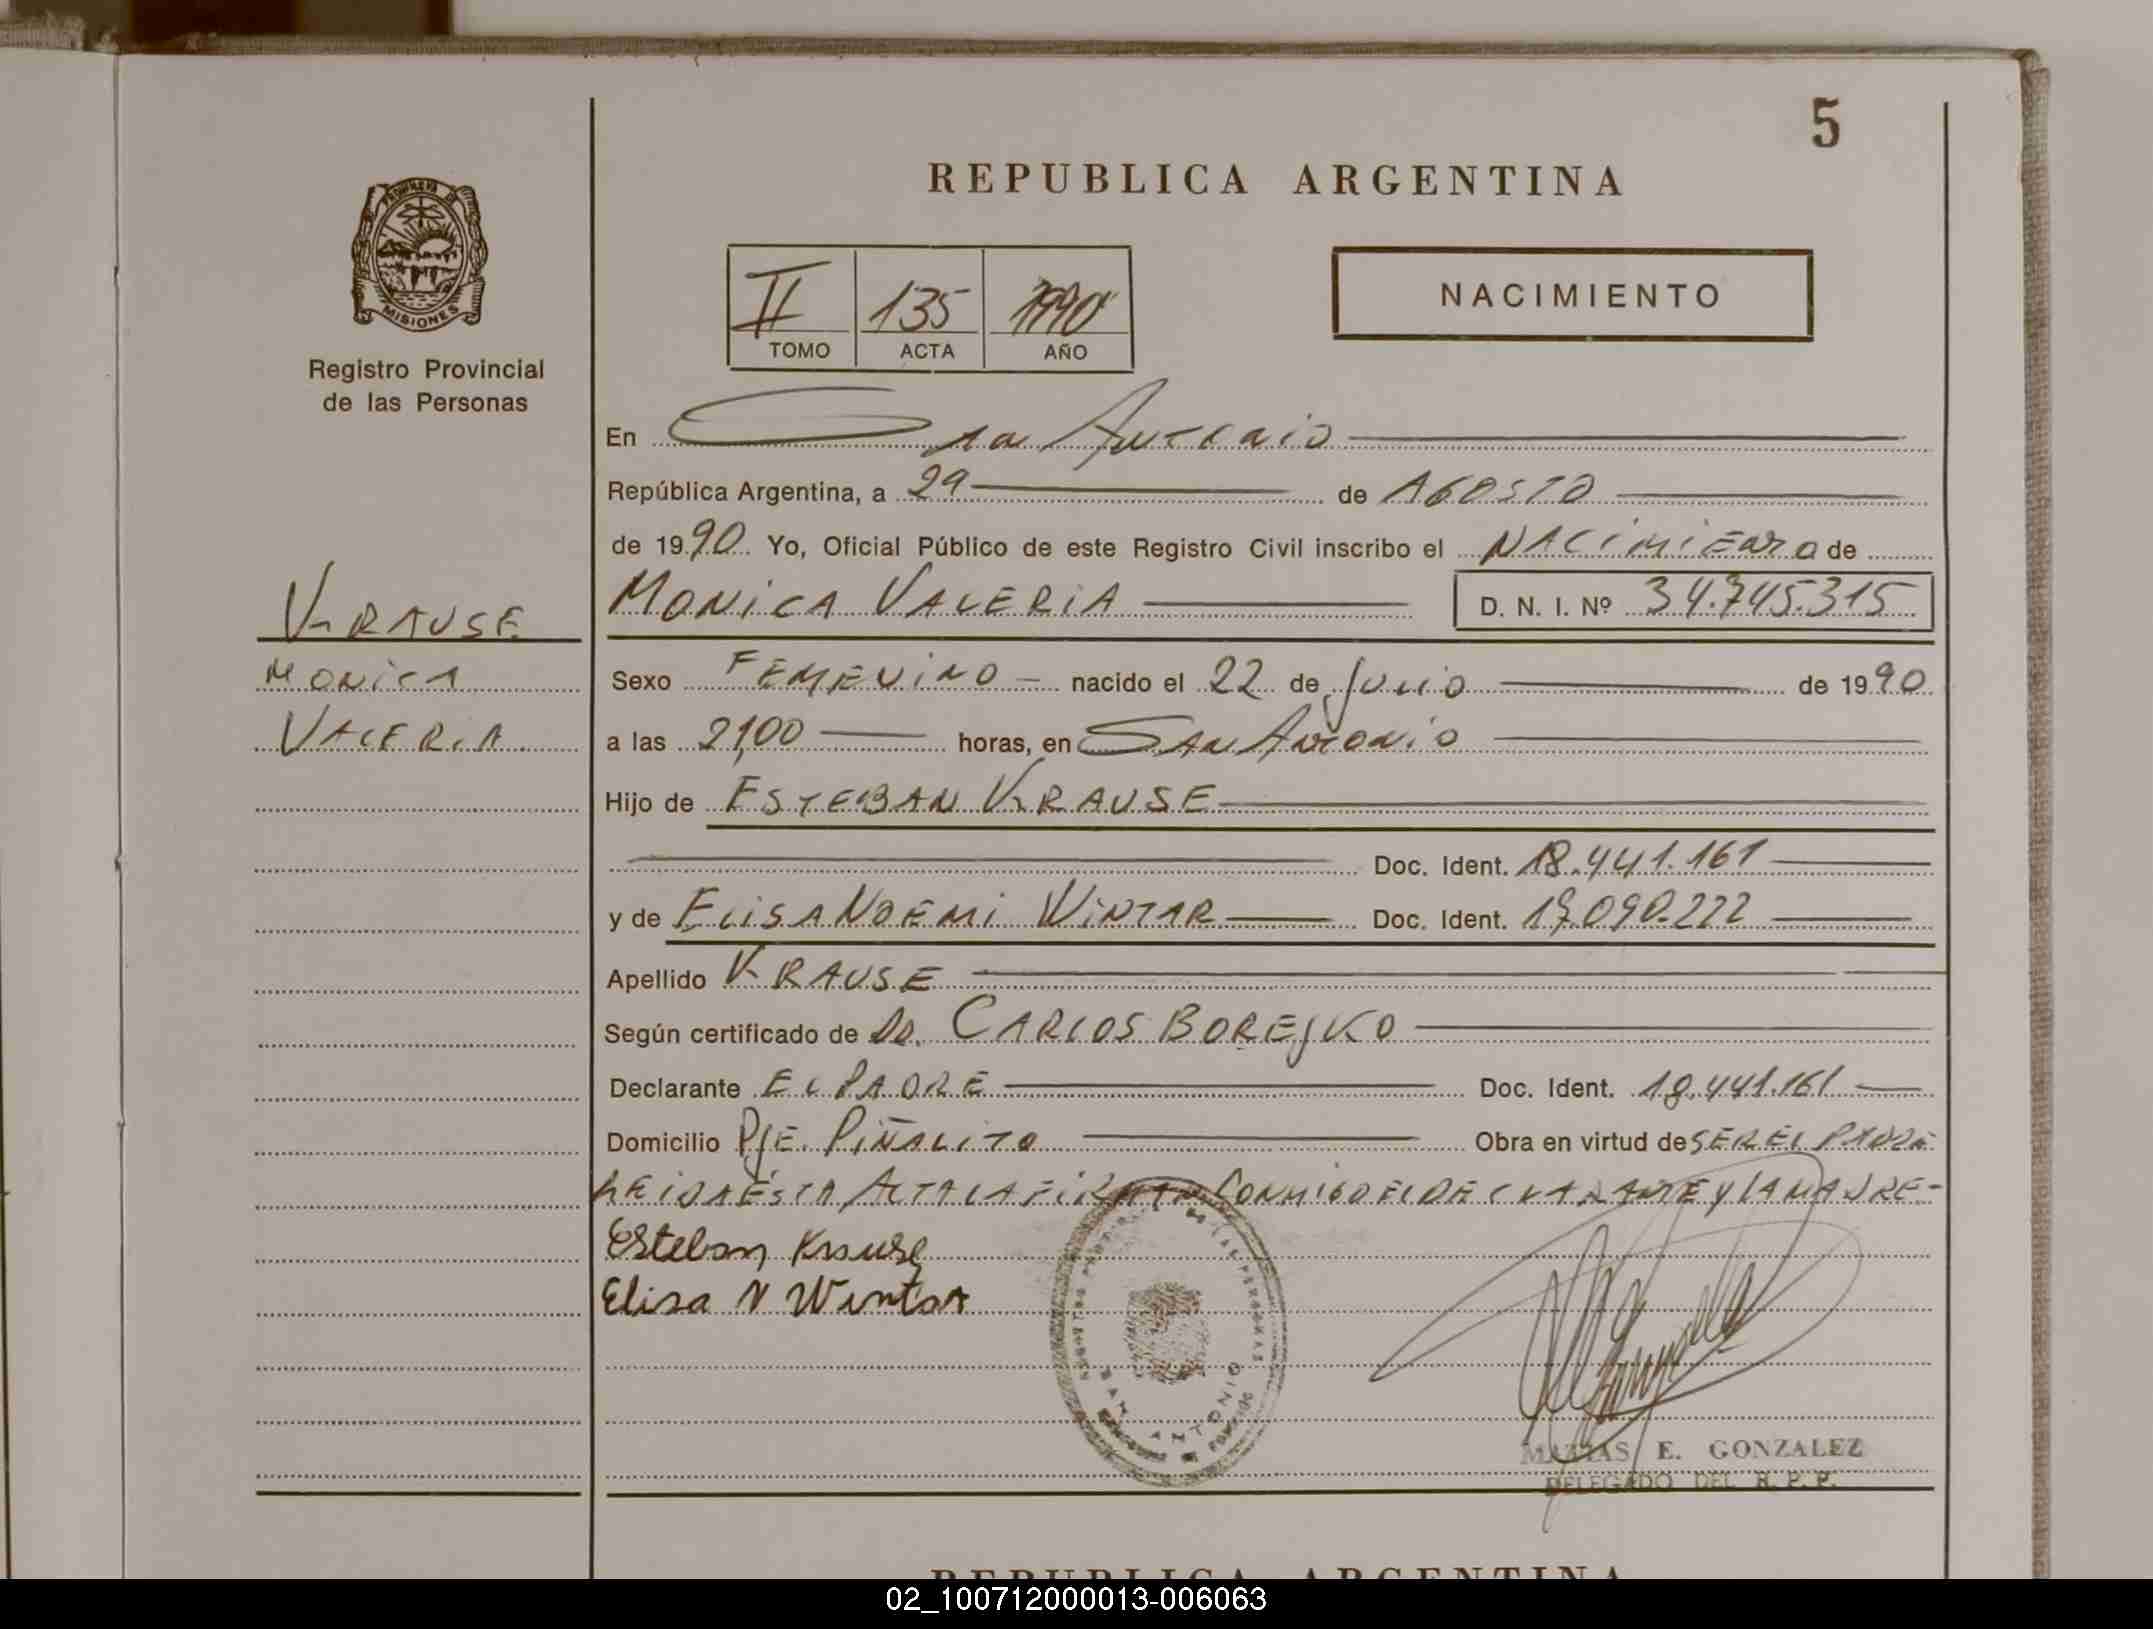 5
REPUBLICA ARGENTINA
PROVINCIA DE
MISIONES
Registro Provincial
de las Personas
II 135 1990
TOMO ACTA AÑO
NACIMIENTO
En San Antonio
República Argentina, a 29 de AGOSTO
de 1990 Yo, Oficial Público de este Registro Civil inscribo el NACIMIENTO de
MONICA VALERIA D. N. I. Nº 34.745.315
KRAUSE
MONICA
VALERIA
Sexo FEMENINO nacido el 22 de Julio de 1990
a las 21,00 horas, en SAN ANTONIO
Hijo de ESTEBAN KRAUSE
Doc. Ident. 18.441.161
y de ELISA NOEMI WINTAR Doc. Ident. 19.090.222
Apellido KRAUSE
Según certificado de Dr. CARLOS BOREJKO
Declarante EL PADRE Doc. Ident. 18.441.161
Domicilio PJE. PIÑALITO Obra en virtud de SER EL PADRE
LEIDA ESTA ACTA LA FIRMAN CONMIGO EL DECLARANTE Y LA MADRE-
Esteban Krause
Elisa N Wintar
SAN ANTONIO
MATIAS E. GONZALEZ
DELEGADO DEL R. P. P.
REPUBLICA ARGENTINA
02_100712000013-006063